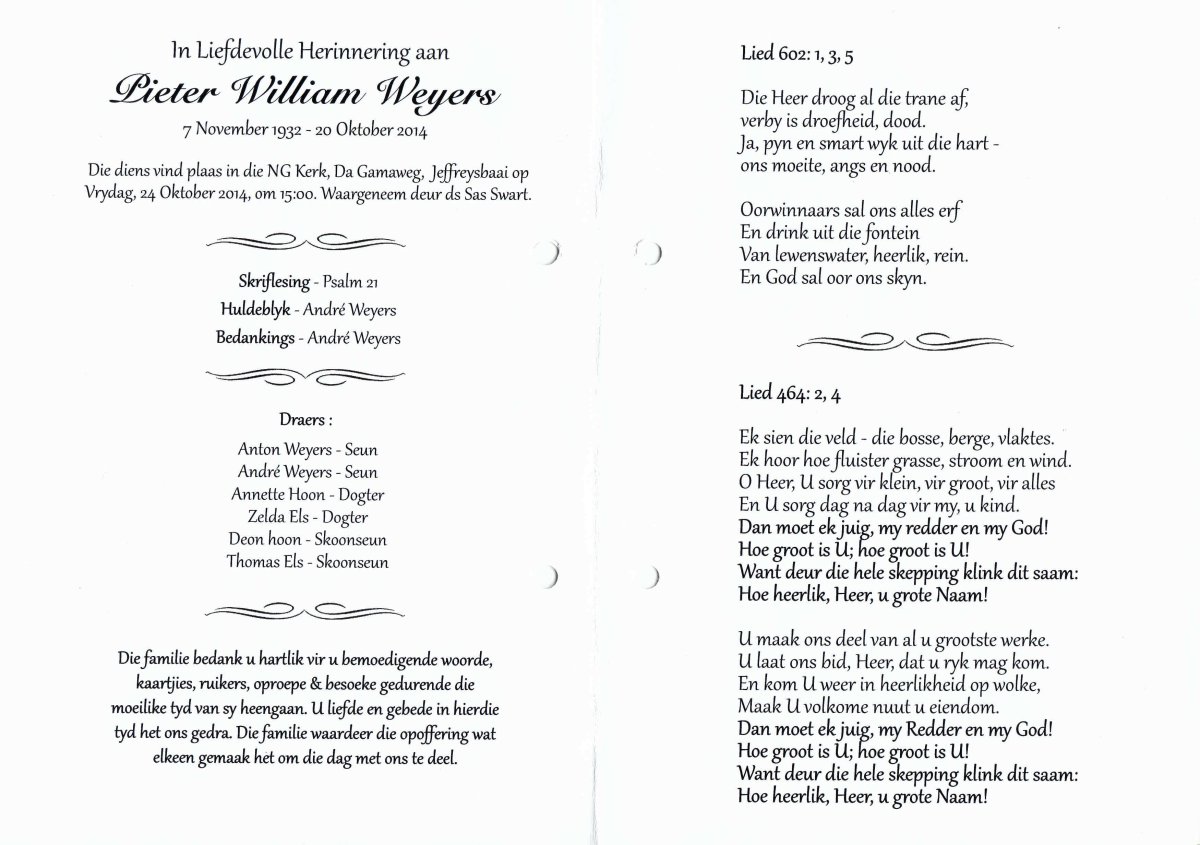 In Liefdevolle Herinnering aan
Pieter William Weyers
7 November 1932 - 20 Oktober 2014
Die diens vind plaas in die NG Kerk, Da Gamaweg, Jeffreysbaai op
Vrydag, 24 Oktober 2014, om 15:00. Waargeneem deur ds Sas Swart.
Skriflesing - Psalm 21
Huldeblyk - André Weyers
Bedankings - André Weyers
Draers :
Anton Weyers - Seun
André Weyers - Seun
Annette Hoon - Dogter
Zelda Els - Dogter
Deon hoon - Skoonseun
Thomas Els - Skoonseun
Die familie bedank u hartlik vir u bemoedigende woorde,
kaartjies, ruikers, oproepe & besoeke gedurende die
moeilike tyd van sy heengaan. U liefde en gebede in hierdie
tyd het ons gedra. Die familie waardeer die opoffering wat
elkeen gemaak het om die dag met ons te deel.
Lied 602: 1, 3, 5
Die Heer droog al die trane af,
verby is droefheid, dood.
Ja, pyn en smart wyk uit die hart -
ons moeite, angs en nood.
Oorwinnaars sal ons alles erf
En drink uit die fontein
Van lewenswater, heerlik, rein.
En God sal oor ons skyn.
Lied 464: 2, 4
Ek sien die veld - die bosse, berge, vlaktes.
Ek hoor hoe fluister grasse, stroom en wind.
O Heer, U sorg vir klein, vir groot, vir alles
En U sorg dag na dag vir my, u kind.
Dan moet ek juig, my redder en my God!
Hoe groot is U; hoe groot is U!
Want deur die hele skepping klink dit saam:
Hoe heerlik, Heer, u grote Naam!
U maak ons deel van al u grootste werke.
U laat ons bid, Heer, dat u ryk mag kom.
En kom U weer in heerlikheid op wolke,
Maak U volkome nuut u eiendom.
Dan moet ek juig, my Redder en my God!
Hoe groot is U; hoe groot is U!
Want deur die hele skepping klink dit saam:
Hoe heerlik, Heer, u grote Naam!